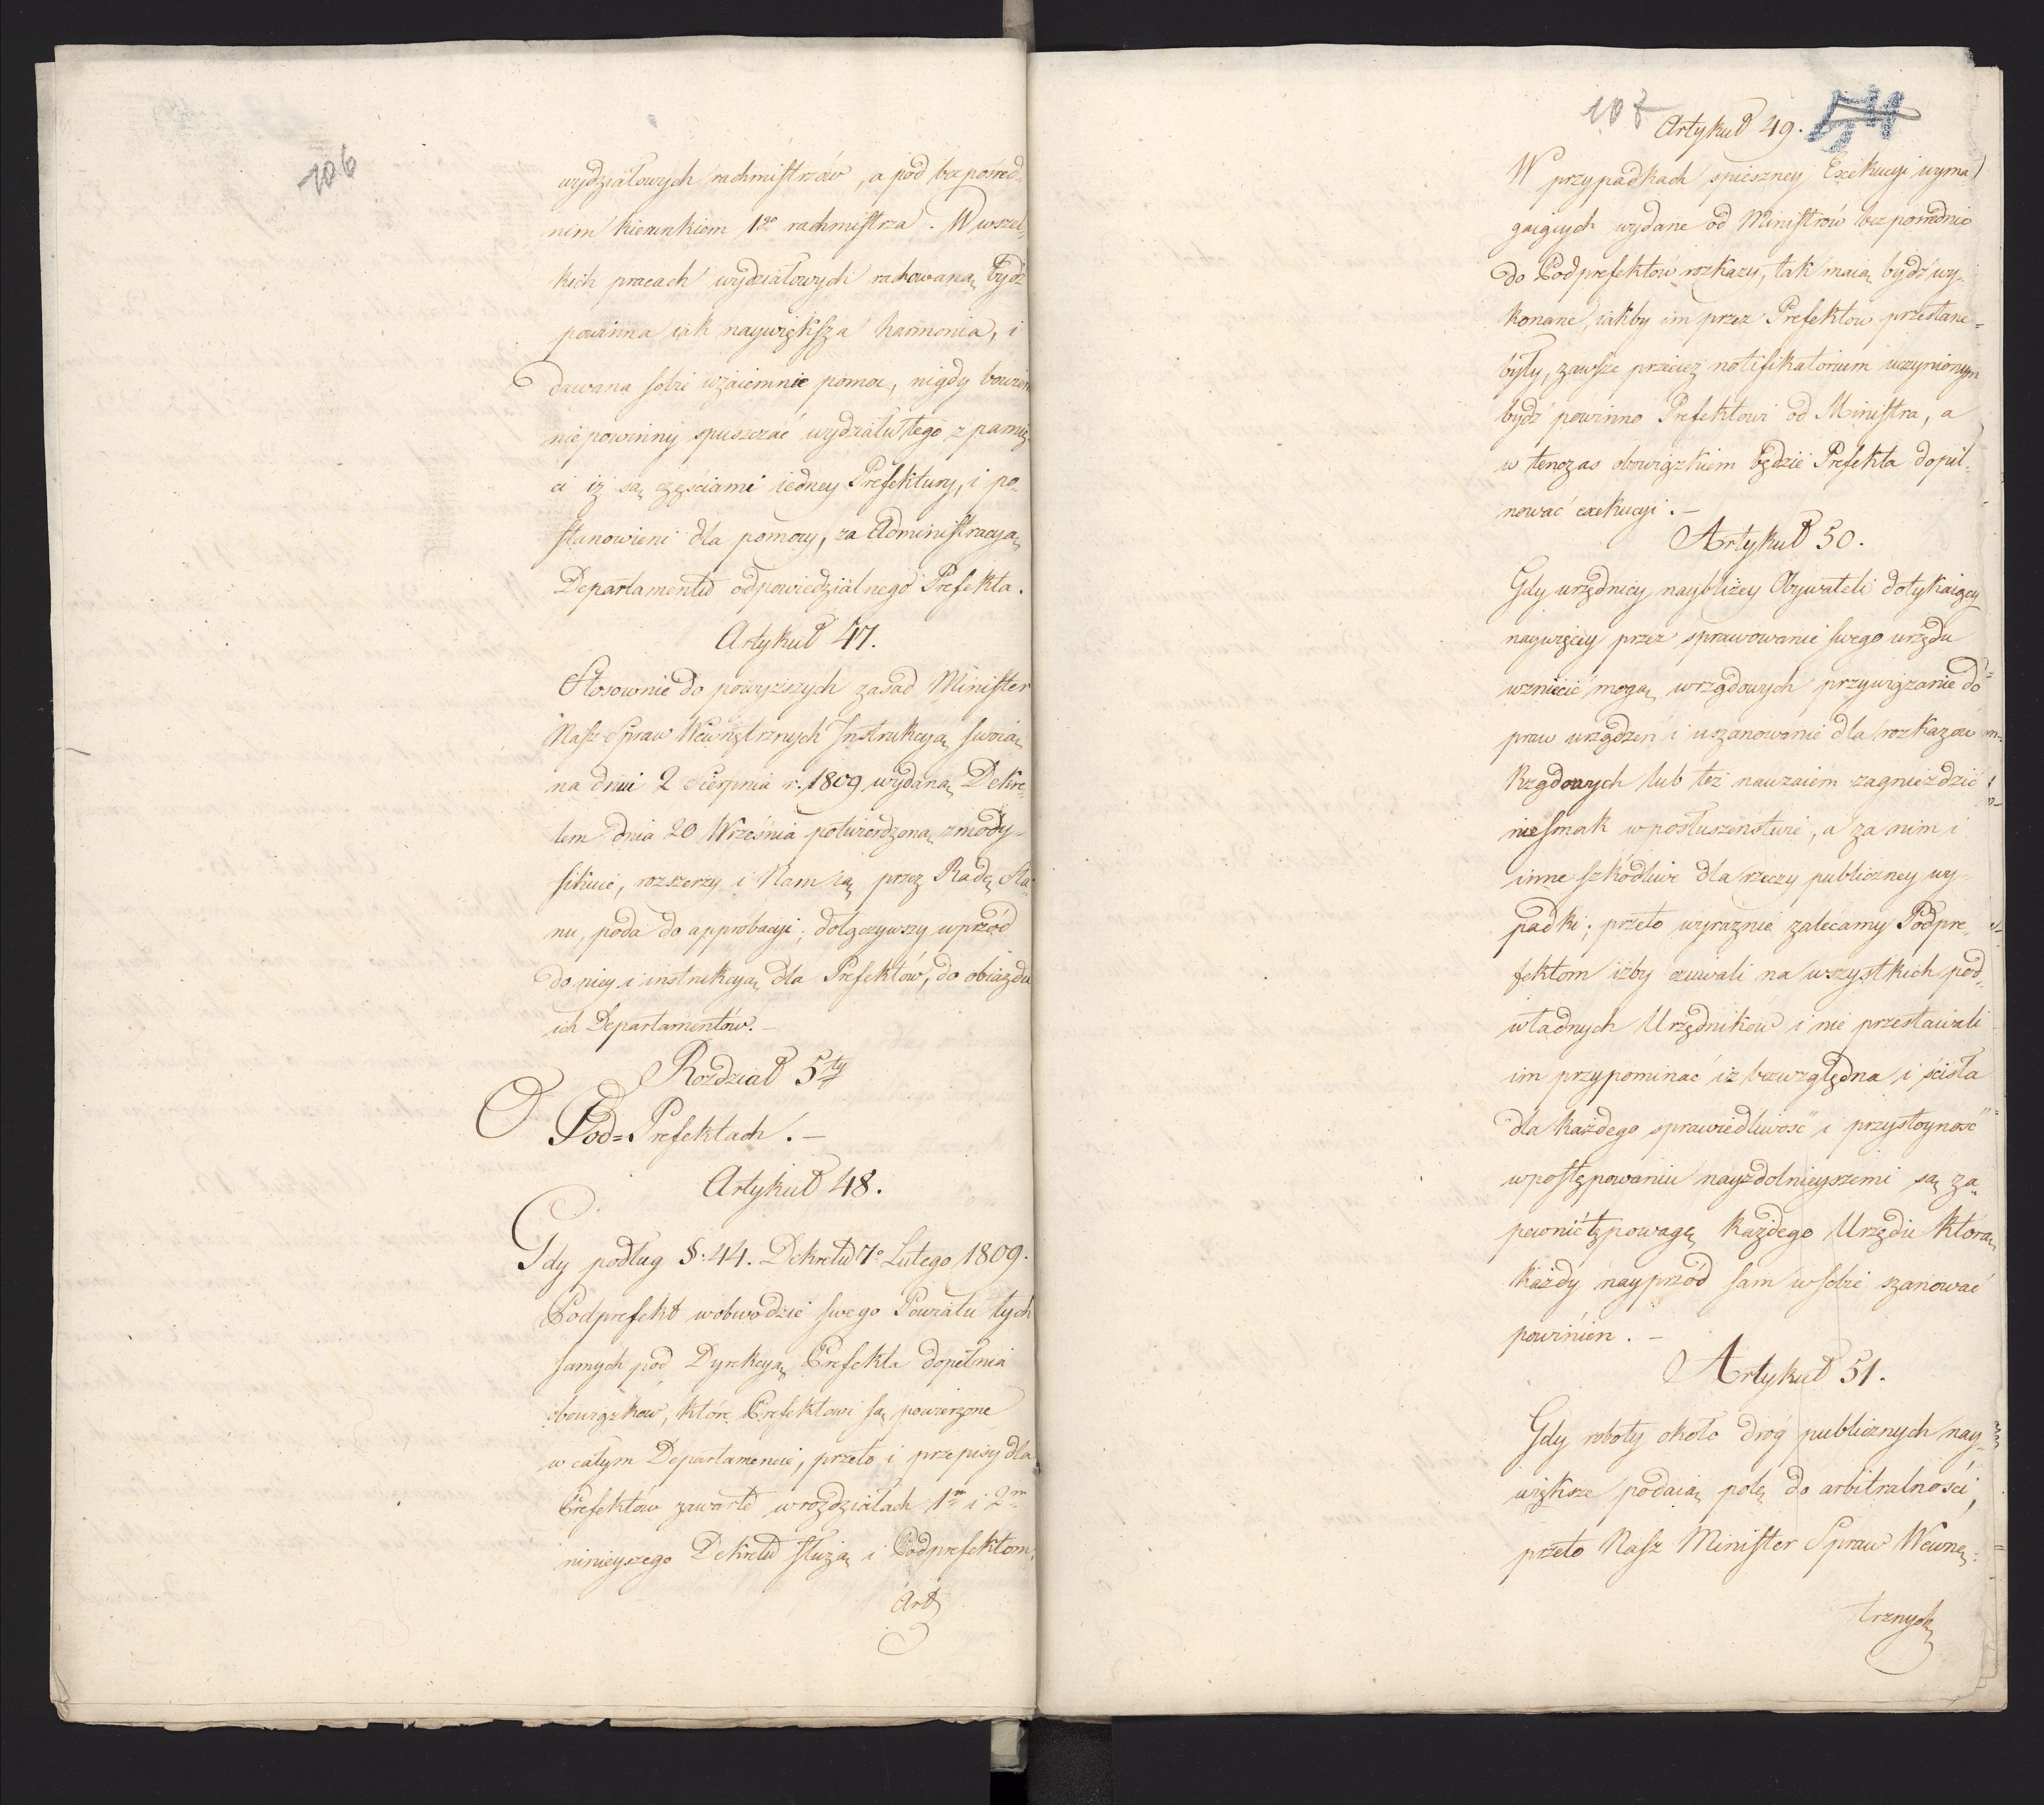 106
wydziałowych rachmistrzów, a pod bezpośred-
nim kierunkiem 1go rachmistrza. W wszel-
kich pracach wydziałowych rachowaną bydź
powinna iak naywiększa harmonia, i
dawana sobie wzaiemnie pomoc, nigdy bowiem
nie powinny spuszczać wydziału tego z pamię-
ci iż są częściami iedney Prefektury, i po-
stanowieni dla pomocy, za Administracyą
Departamentu odpowiedzialnego Prefekta.
Artykuł 47.
Stosownie do powyższych zasad Minister
Nasz Spraw Wewnętrznych Instrukcyą swoią
na dniu 2 Sierpnia r. 1809 wydaną Dekre-
tem dnia 20 Września potwierdzoną zmody-
fikuie, rozszerzy i Nam ią przez Radę Sta-
nu, poda do approbacyi; dołączywszy wprzód
do niey i instrukcyą dla Prefektów, do obiazdu
ich Departamentów.–
Rozdział 5ty
O Pod=Prefektach.–
Artykuł 48.
Gdy podług §. 44. Dekretu 7o Lutego 1809.
Podprefekt w obwodzie swego Powiatu tych
samych pod Dyrekcyą Prefekta dopełnia
obowiązków, które Prefektowi są powierzone
w całym Departamencie, przeto i przepisy dla
Prefektów zawarte w rozdziałach 1m i 2m
ninieyszego Dekretu służą i Podprefektom.
Art
107
Artykuł 49.
W przypadkach spieszney Exekucyi wyma-
gaiących wydane od Ministrów bezpośrednio
do Podprefektów rozkazy, tak maią bydź wy-
konane, iakby im przez Prefektów przesłane
były, zawsze przecież notifikatorium uczynionym
bydź powinno Prefektowi od Ministra, a
w tenczas obowiązkiem będzie Prefekta dopil-
nować exekucyi.–
Artykuł 50.
Gdy urzędnicy naybliżey Obywateli dotykaiący
naywięcey przez sprawowanie swego urzędu
wzniecić mogą w rządowych przywiązanie do
praw urządzeń i uszanowanie dla rozkazów
Rządowych lub też nauzaiem zagnieździć
niesmak w posłuszeństwie, a za nim i
inne szkodliwe dla rzeczy publiczney wy-
padki; przeto wyraźnie zalecamy Podpre-
fektom iżby czuwali na wszystkich pod-
władnych Urzędników i nie przestawali
im przypominać iż bezwzględna i ścisła
dla każdego sprawiedliwość i przystoyność
w postępowaniu nayzdolnieyszemi są za-
pewnić tę powagę każdego Urzędu którą
każdy nayprzód sam w sobie szanować
powinien.–
Artykuł 51.
Gdy roboty około dróg publicznych nay-
większe podaią polę do arbitralności,
przeto Nasz Minister Spraw Wewnę-
trznych